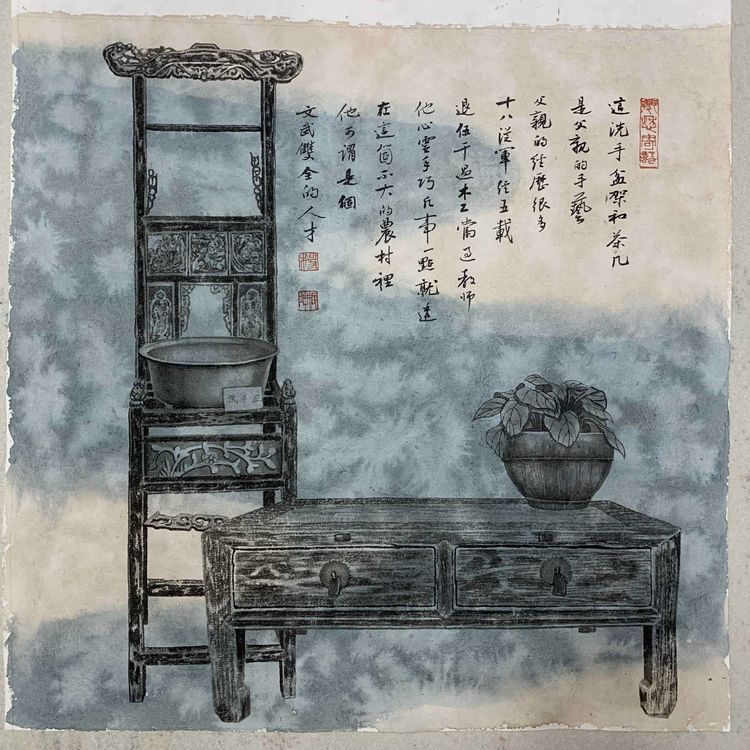 這洗手盆架和茶几
是父親的手藝
父親的經歷很多
十八從軍經五載
退伍干過木工當過教師
他心靈手巧凡事一點就透
在這箇不大的農村裡
他可謂是個
文武雙全的人才